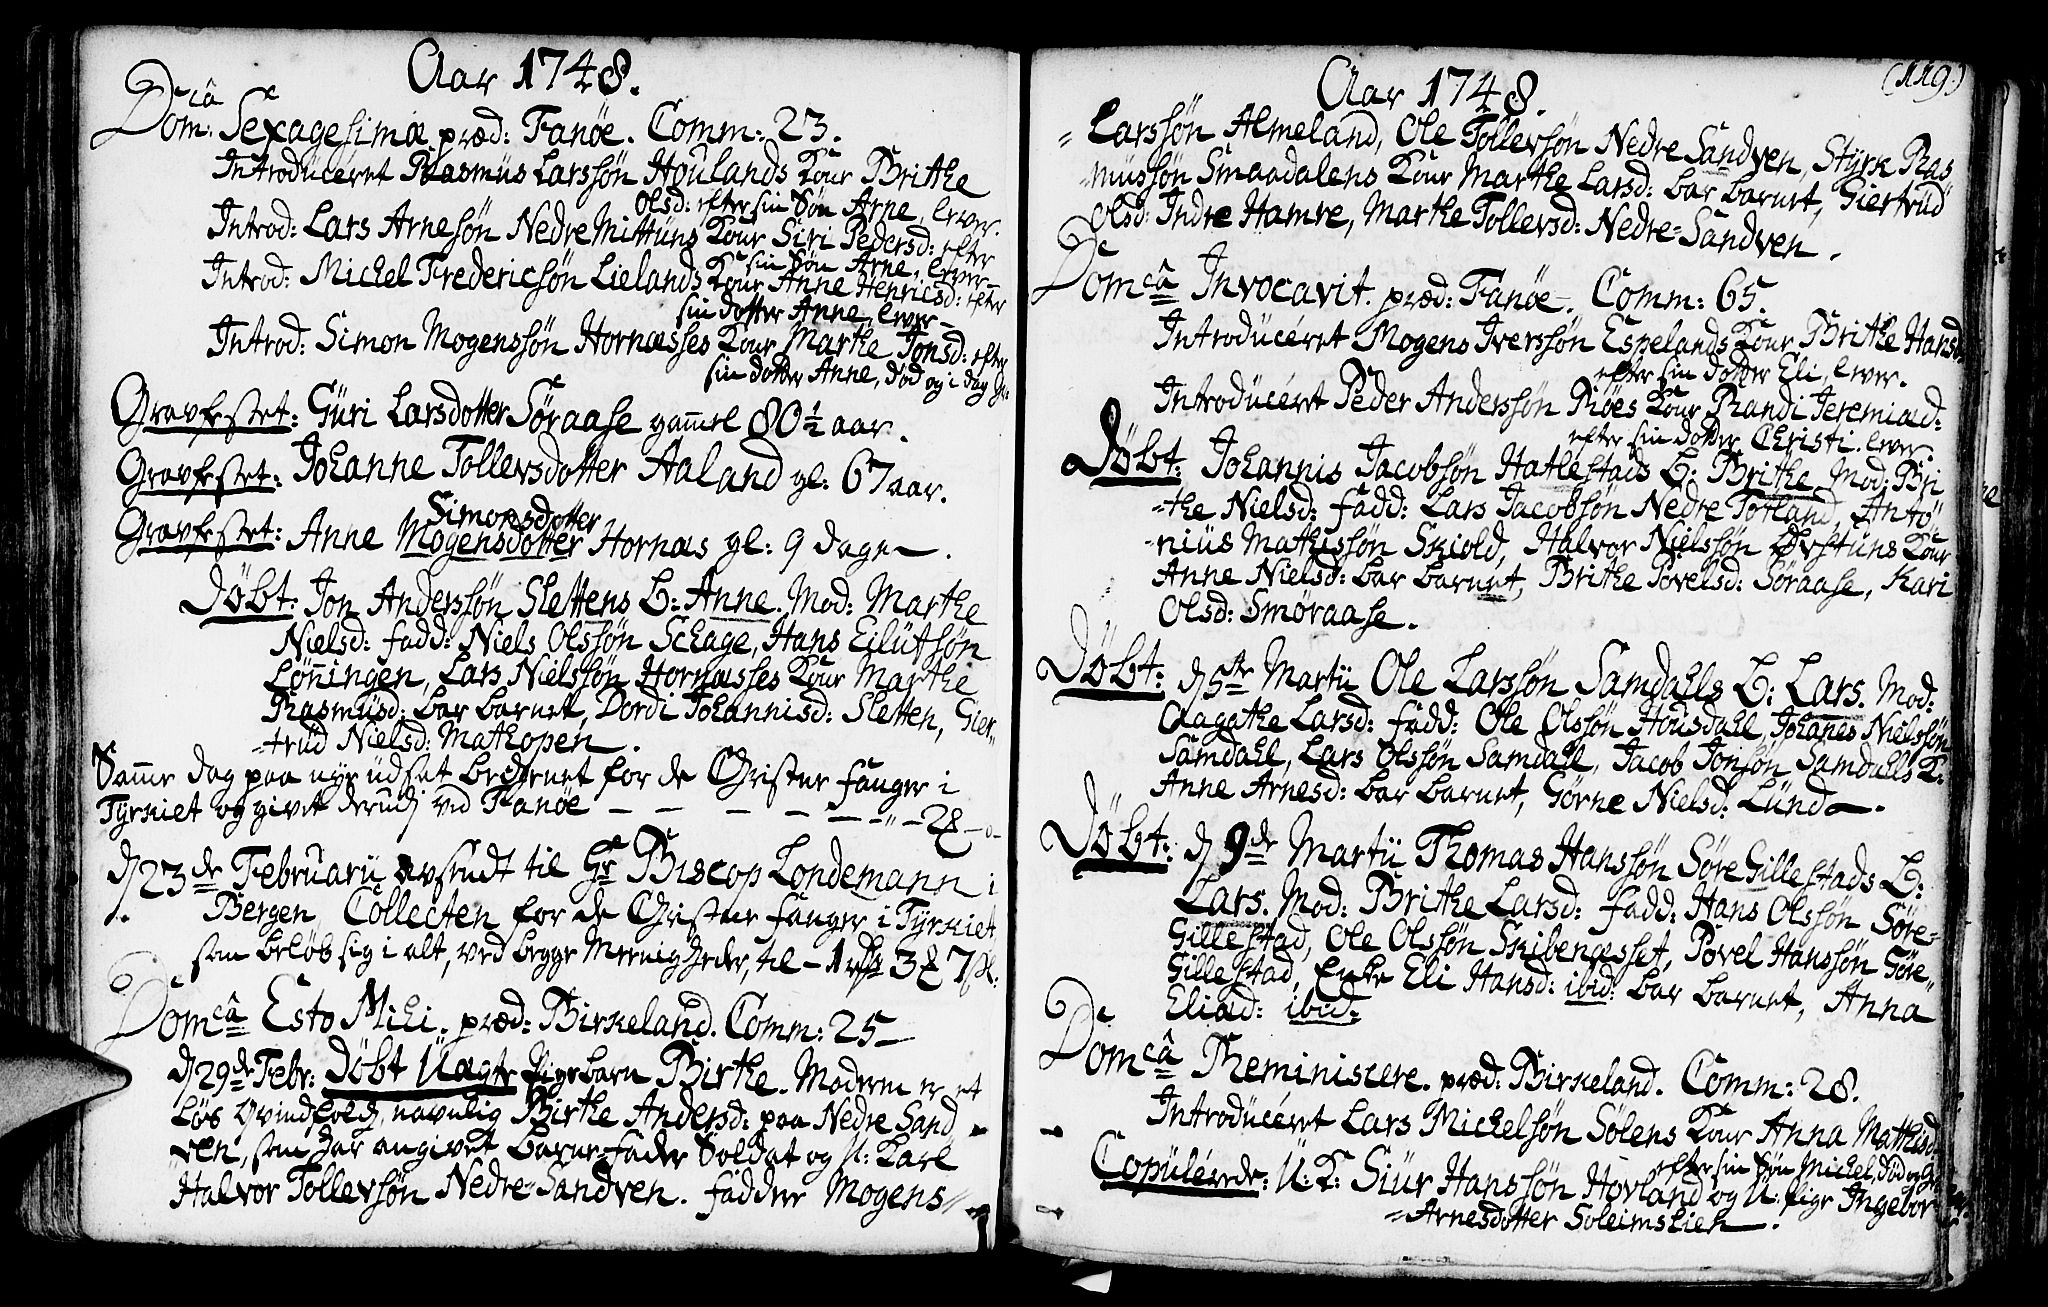 Aar 1748.
Dom:câ Sexagesimæ præd: Fanöe. Comm: 23.
Introducéret Rasmus Larssön Houlands Kone Brithe
Olsd: efter sin Sön Arne, lever.
Introd: Lars Arnesön Nedre Mittuns Kone Siri Pedersd: efter
sin Sön Arne, lever.
Introd: Michel Fredericsön Lielands Kone Anne Henricsd: efter
sin dotter Anne, lever
Introd: Simon Mogenssön Hornæsses Kone Marthe Jonsd: efter
sin dotter Anne, död og i dag
Gravfestet: Guri Larsdotter Söraase gammel 80 1/2 aar.
Gravfestet: Johanne Tollevsdotter Aaland gl: 67 aar.
Simonsdotter
Gravfestet: Anne Mogensdotter Hornæs gl: 9 dage.
Döbt: Jon Anderssön Slettens B: Anne. Mod: Marthe
Nielsd: fadd: Niels Olssön Schage, Hans Eilutsön
Lönningen, Lars Nielssön Hornæsses Kone Marthe
Rasmusd: bar barnet, Dordi Johannisd: Sletten, Gier-
-trud Nielsd: Mathopen.
Samme dag paa nye udsat bechenet for de Christne fanger i
Tyrkiet og givet derudj ved Fanöe — — — — — 28
d 23de Februarii avsendt til Hr Biscop Londemann i
Bergen Collecten for de Christne fanger i Tyrkiet
som belöb sig i alt, ved begge Meenigheder, til - 1 rdr 3 & 7 s:
Domcâ Esto Mihi. præd: Birkeland. Comm: 25
d 29de Febr: Döbt Uægte Pigebarn Birthe. Moderen er et
lös Qvindfolch, navnlig Birthe Andersd: paa Nedre Sand
ven, som har angivet Barne-fader Soldat og U: Karl
Halvor Tollevsön Nedre-Sandven. fadder Mogens
Aar 1748.
(119.)
Larssön Almeland, Ole Tollevsön Nedre Sandven, Styrk Ras
mussön Smaadalens Kone Marthe Larsd: bar barnet, Giertrud
Olsd: Indre Hamre, Marthe Tollevsd: Nedre-Sandven.
Domcâ Invocavit. præd: Fanöe. Comm: 65.
Introducéret Mogens Iverssön Espelands Kone Brithe Hansd:
efter sin dotter Eli, lever.
Introducéret Peder Anderssön Röes Kone Randi Jeremiæd:
efter sin dotter Christi. lever.
Döbt: Johannis Jacobsön Hatlestads B: Brithe. Mod: Bri
-the Nielsd: fadd: Lars Jacobsön Nedre Totland, Anto-
-nius Mathissön Skiold, Halvor Nielssön Övstuns Kone
Anne Nielsd: bar barnet, Brithe Povelsd: Söraase, Kari
Olsd: Smöraase.
Döbt: d 5te Martii Ole Larssön Samdahls B: Lars. Mod:
Aagathe Larsd: fadd: Ole Olssön Housdahl, Johanes Nielssön
Samdahl, Lars Olssön Samdahl, Jacob Jonsön Samdahls K:
Anne Arnesd: bar barnet, Görne Nielsd: Lund.
Döbt: d 9de Martii Thomas Hanssön Söre Gillestads B:
Lars. Mod: Brithe Larsd: fadd: Hans Olssön Söre-
Gillestad, Ole Olssön Skibenæsset, Povel Hanssön Söre-
Gillestad, Enke Eli Hansd: ibid: bar barnet, Anna
Eliæd: ibid:
Domcâ Reminiscere. præd: Birkeland. Comm: 28.
Introducéret Lars Michelsön Sölens Kone Anna Mathisd:
efter sin Sön Michel, död og
Copulérede: U: K: Siur Hanssön Hovland og U: Pige Ingebor
Arnesdotter Soleimslieh.